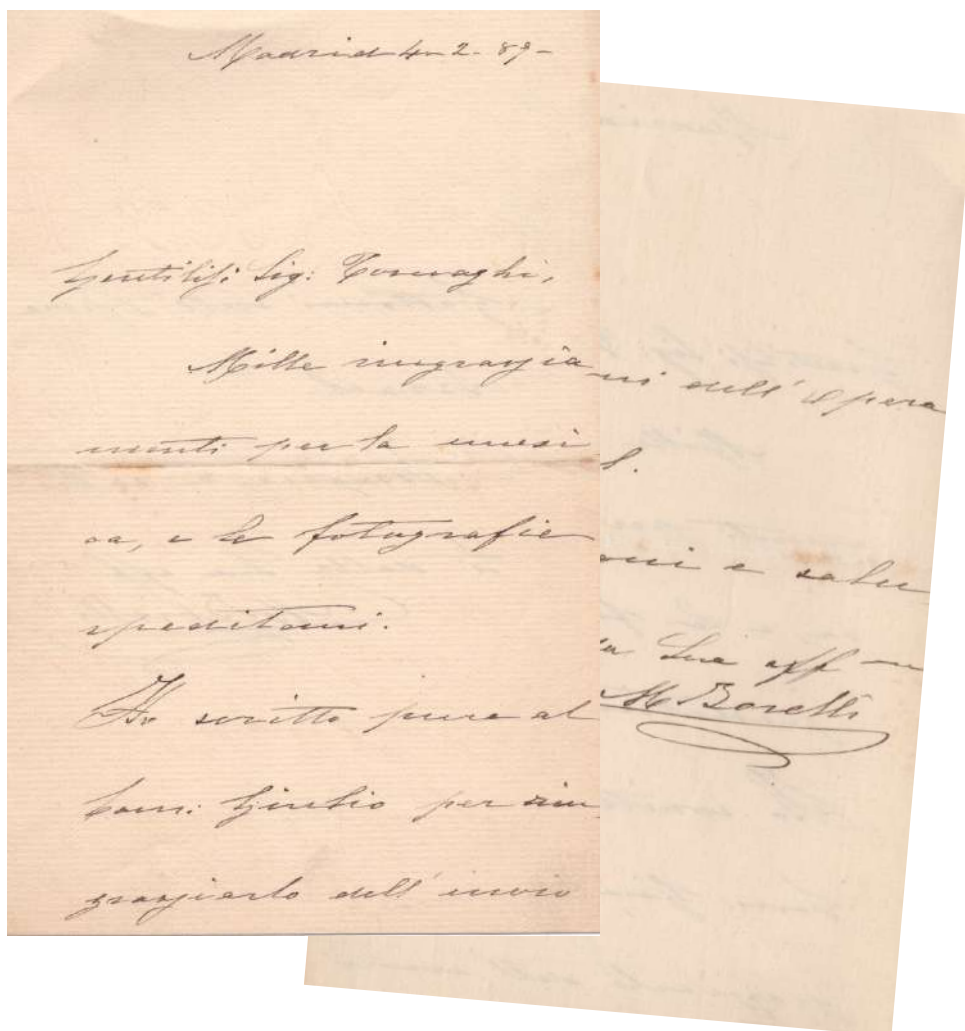 Madrid 4-2-89-
Gentilis: Sig: Tornaghi,
Mille ringrazia
menti per la musi
ca, e le fotografie
speditemi.
Ho scritto pure al
Comm: Giulio per rin
graziarlo dell' invio
ni dell' Opera
l.
oni e salu
Sua aff
M Borelli